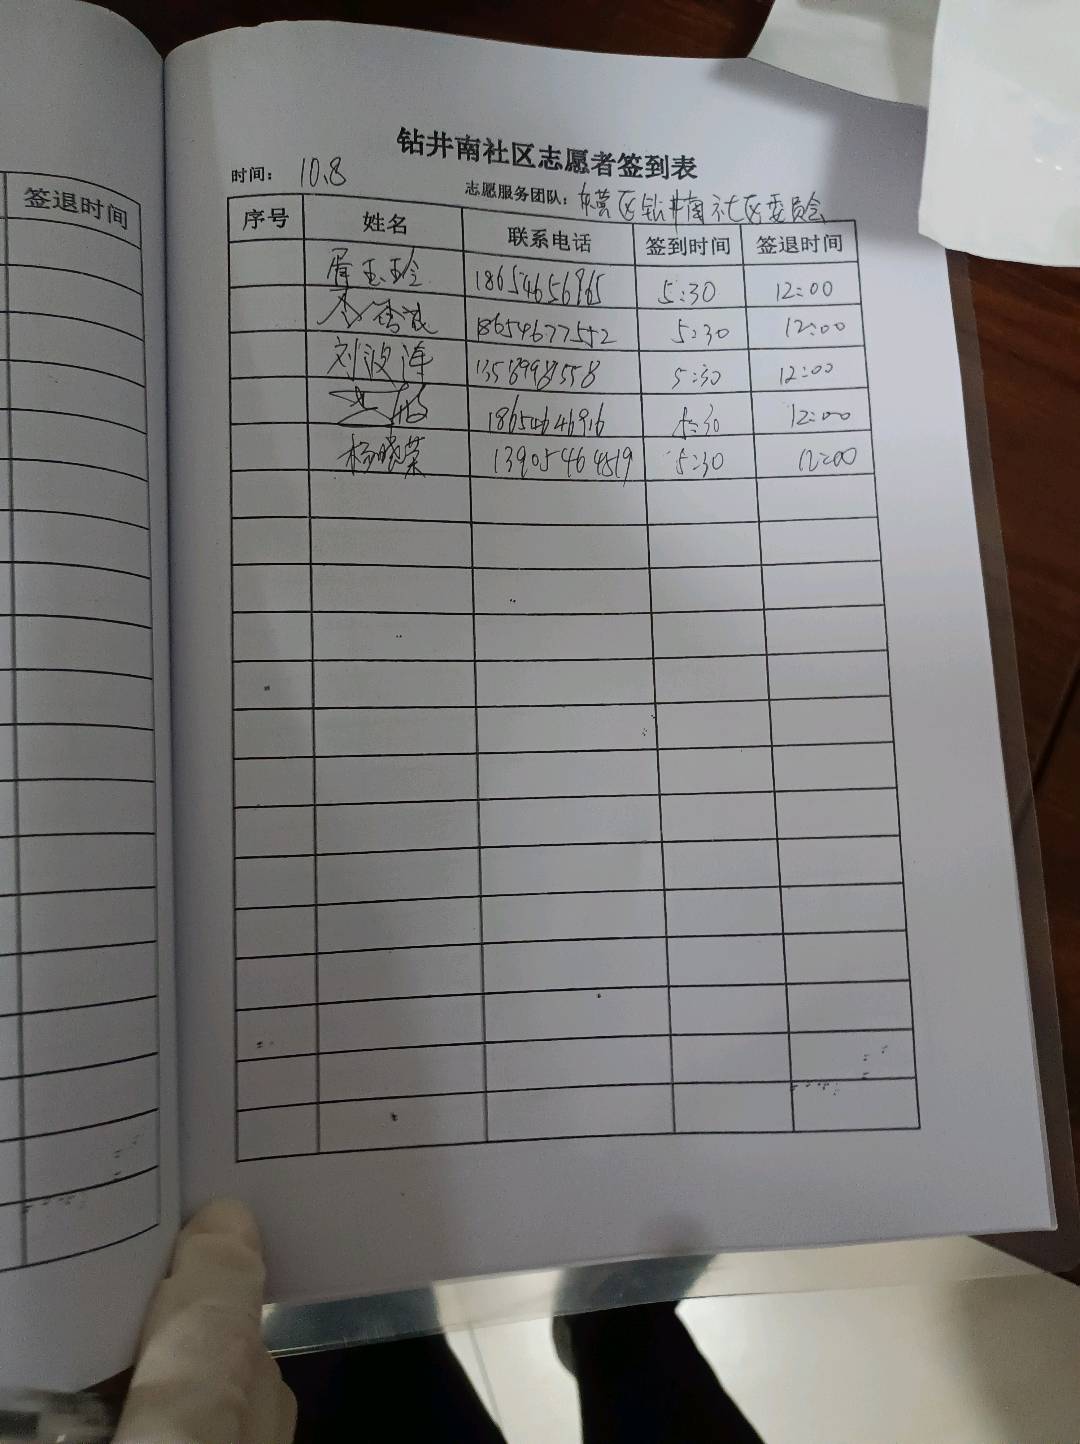 签退时间
钻井南社区志愿者签到表
时间： 10.8
志愿服务团队：东营区钻井南社区委员会
序号 姓名 联系电话 签到时间 签退时间
胥玉玲 18654656965 5:30 12:00
18654677552 5:30 12:00
刘波涛 5:30 12:00
5:30 12:00
杨晓荣 13905464819 5:30 12:00